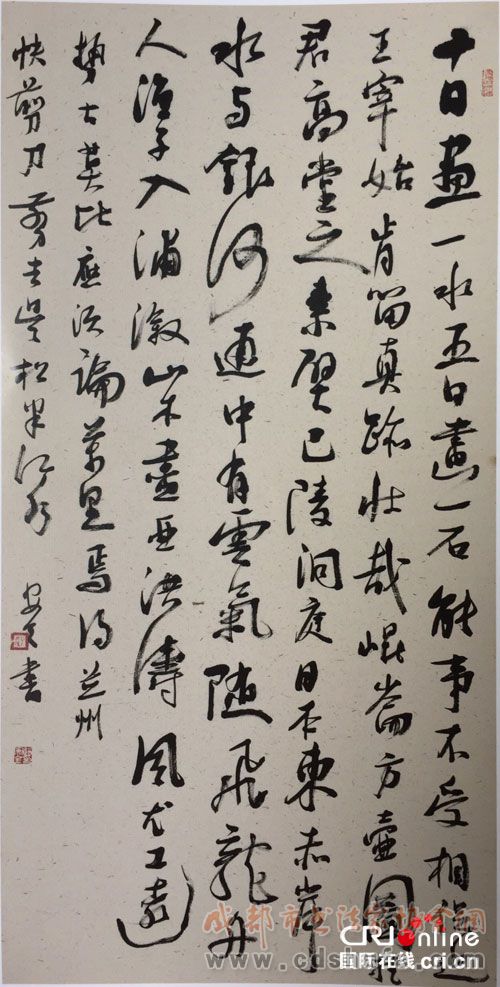 十日畫一水五日畫一石能事不受相促迫
王宰始肯留真跡壮哉崐崙方壺圖挂
君高堂之素壁巴陵洞庭日本東赤岸
水与銀河通中有雲氣随飛龍舟
人渔子入浦溆山木盡亞洪濤风尤工遠
势古莫比應須論萬里焉得並州
快剪刀剪去吴松半江水
書
成都市书法家协会網
www.cdshufa.c
CRIonline
国际在线 cri.cn